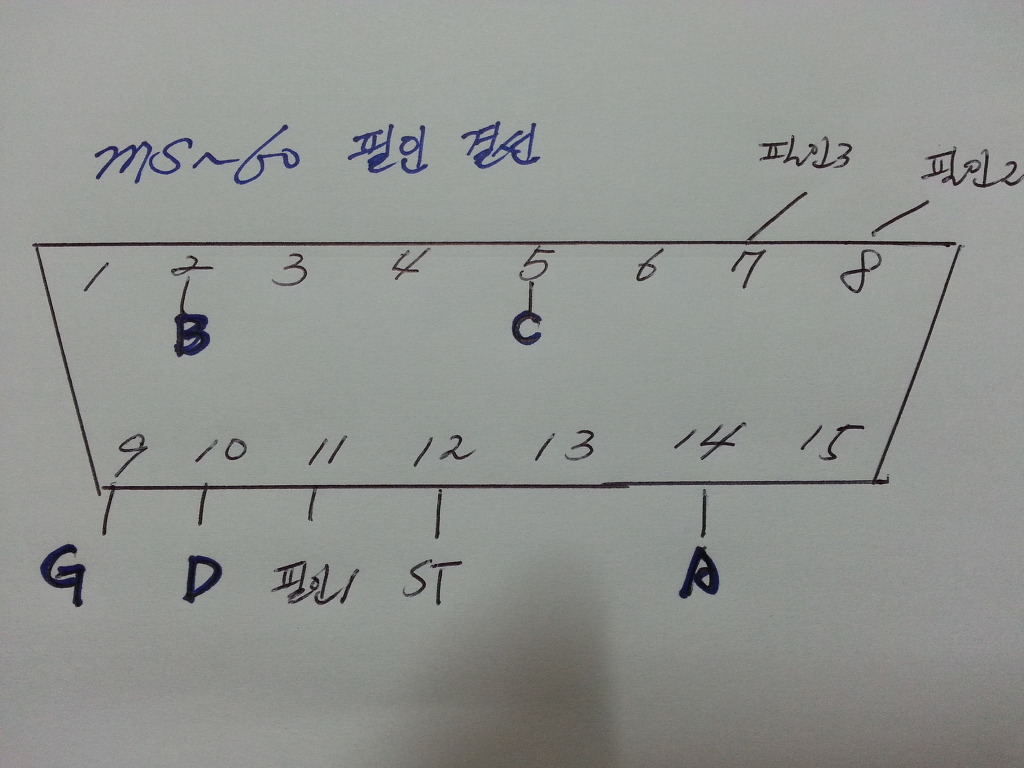 MS~60 필인 결선
필인3 필인2
1 2 3 4 5 6 7 8
B C
9 10 11 12 13 14 15
G D 필인1 ST A